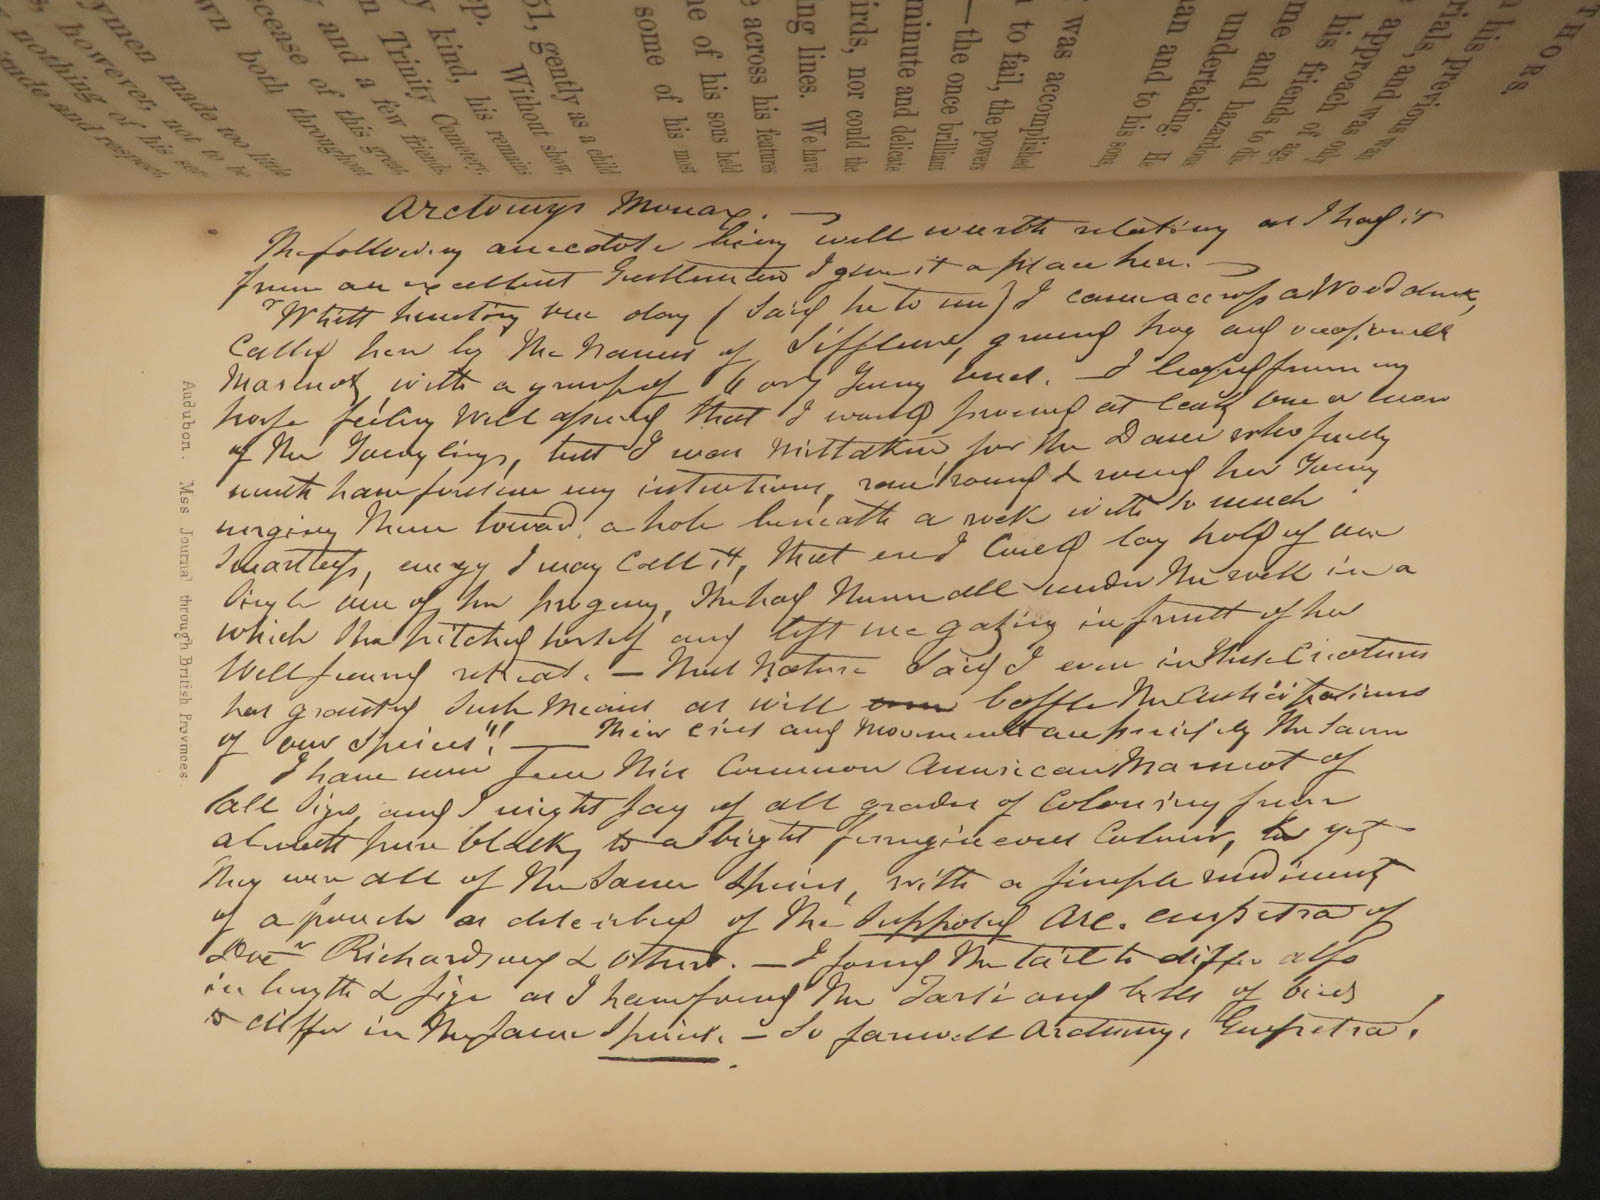 THORS.
n his previous
rials, and was
approach of age
his friends to
me and hazardous
undertaking. H
an and to his son
was accomplished
n to fail, the powers
—the once brilliant
minute and delicate
irds, nor could the
ng lines. We have
across his features
ne of his sons held
some of his most
51, gently as a child
ep. Without show,
y kind, his remains
n Trinity Cemetery,
y and a few friends
ecease of this great
wn both throughout
ymen made too little
s, however, not to be
nothing of his
and respect,
Arctomys Monax. —
The following anecdote being well worth relating as I had it
from an excellent Gentleman I give it a place here. —
"Whilst hunting one day (said he to me) I came across a Woodchuck,
Called here by the names of Siffleur, ground hog and
Marmot, with a group of 6 or 7 Young ones. — I leaped from my
horse feeling well assured that I would procure at least one or
of the Younglings, but I was mistaken for the Dam who
must have foreseen my intentions, ran round & round her Young
urging them toward a hole beneath a rock with so much
Smartness, energy I may call it, that ere I could lay hold of one
Single one of her progeny, She had them all under the rock in
which She pitched herself and left me gazing in front of her
Well found retreat. — That Nature said I even in these Creatures
has granted Such Means as will baffle the
of our Species"! — Their cries and movements are precisely the same
I have now seen this Common American Marmot of
all Size, and I might say of all grades of Colouring from
almost pure black, to a bright ferrugineous Colour, yet
they were all of the Same Species, with a simple rudiment
of a pouch as described of the Supposed Arc. empetra of
Docr Richardson & others. — I found the tail to differ also
in length & size as I have found the Tarsi and bills of birds
differ in the same Species. — So farewell Arctomys, Empetra!
Audubon. Mss Journal through British Provinces.